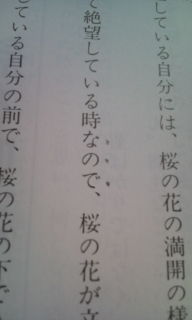 している自分には、桜の花の満開の様
て絶望している時なので、桜の花が立
している自分の前で、桜の花の下で